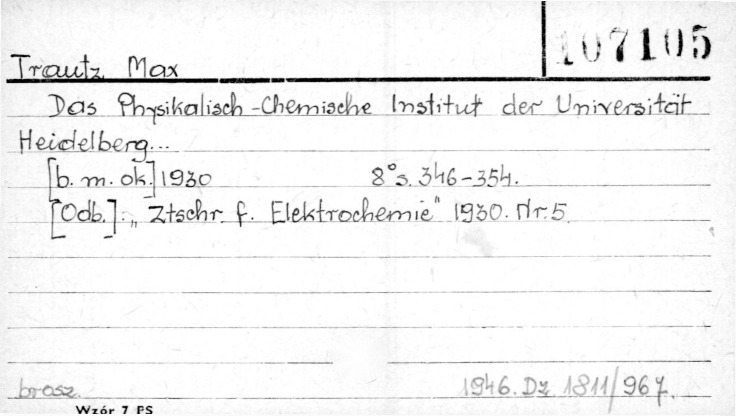 107105
Trautz Max
Das Physikalisch-Chemische Institut der Universität
Heidelberg...
[b. m. ok.] 1930 8° s. 346-354.
[Odb.]: „Ztschr. f. Elektrochemie" 1930. Nr. 5
brosz. 1946. Dz 1811/967.
Wzór 7 PS